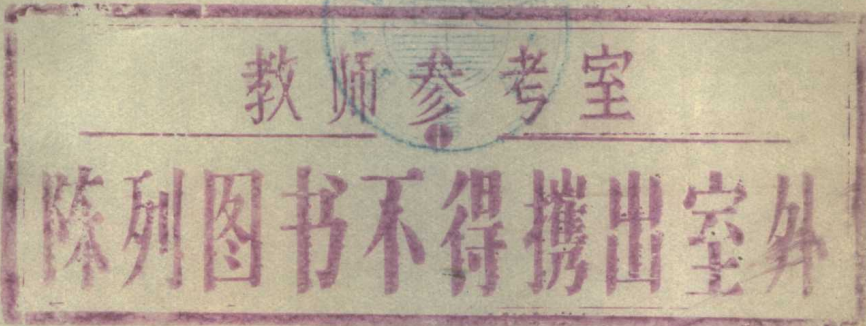 教师参考室
陈列图书不得携出室外